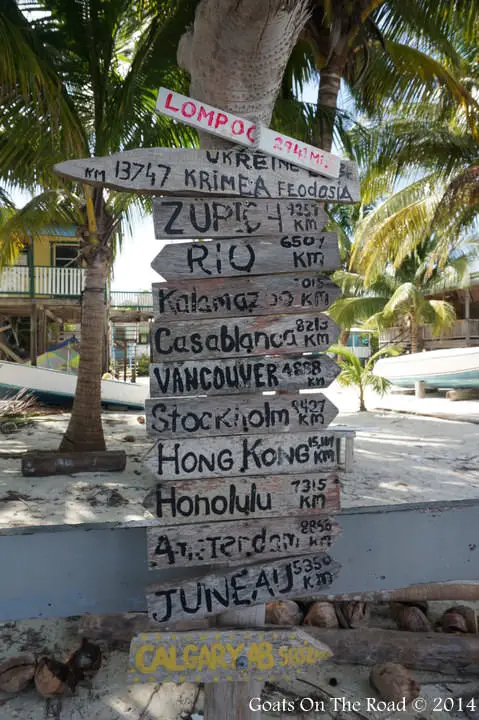 LOMPOC 2941 MI.
UKREINE
KM 13747 KRIMEA FEODOSIA
ZURICH
RIO 6507 KM
KALAMAZOO KM
CASABLANCA 8213 KM
VANCOUVER KM
STOCKHOLM KM
HONG KONG KM
HONOLULU 7315 KM
AMSTERDAM KM
JUNEAU 5350 KM
CALGARY AB
Goats On The Road © 2014